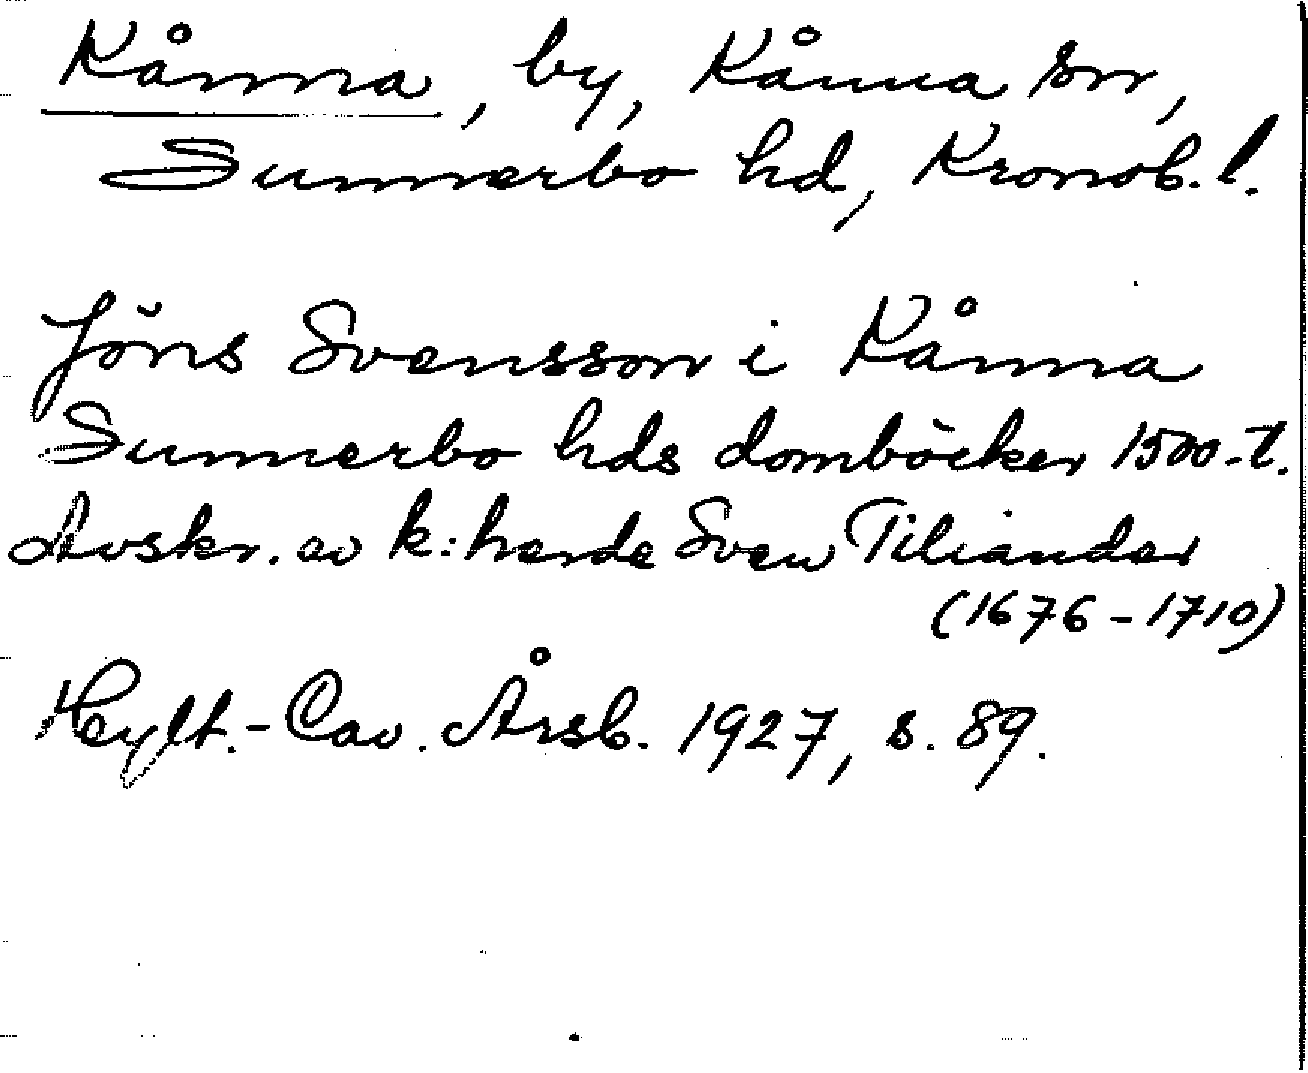 Kånna, by, Kånna sn,
Sunnerbo hd, Kronob. l.
Jöns Svensson i Kånna
Sunnerbo hds domböcker 1500-t.
Avskr. av k:herde Sven Tiliander
(1676-1710)
Hylt.-Cav. Årsb. 1927, s. 89.